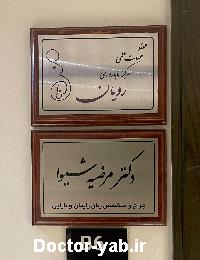 عضو
هیات علمی
مرکز ناباروری
رویان
دکتر مرضیه شیوا
جراح و متخصص زنان، زایمان و نازایی
B6
Doctor-yab.ir